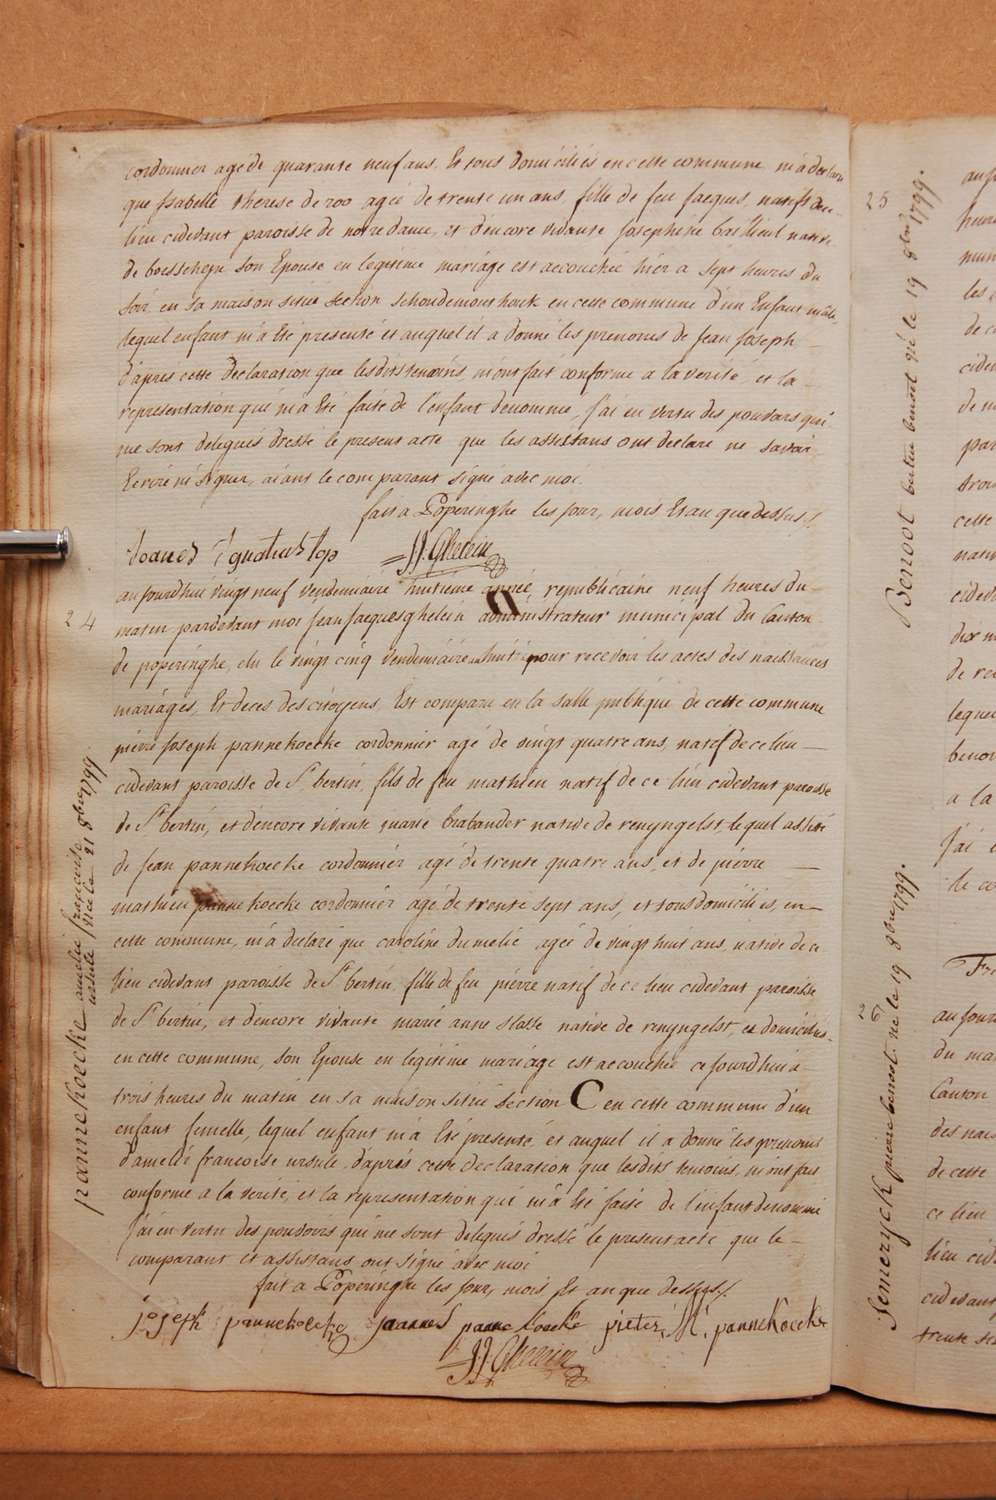 cordonnier agé de quarante neuf ans. Et tous domiciliés en cette commune m'a declaré
que Isabelle therese de roo agée de trente un ans, fille de feu jacques, natif de ce
lieu cidevant paroisse de notre dame, et d'encore vivante josephine bailleul native
de boesschepe son Epouse en legitime mariage est accouchée hier a sept heures du
soir en sa maison située section schoudemonthouk en cette commune d'un Enfant mâle,
lequel enfant m'a Eté presenté et auquel il a donné les prenoms de jean joseph
d'apres cette declaration que lesdits temoins m'ont fait conforme a la verité, et la
representation qui m'a Eté faite de l'enfant denommé, j'ai en vertu des pouvoirs qui
me sont delegués dressé le present acte que les assistans ont declaré ne savoir
Ecrire ni signer, aiant le comparant signé avec moi.
fait a Poperinghe les jour, mois Et an que dessus.
Joanes Ignatius top J.J. Ghelein
24
aujourdhui vingt neuf vendemiaire huitieme année republicaine neuf heures du
matin pardevant moi jean jacques ghelein administrateur municipal du Canton
de poperinghe, elu le vingt cinq vendemiaire an huit pour recevoir les actes des naissances
mariages, Et deces des citoyens, Est comparu en la salle publique de cette commune
pierre joseph pannekoecke cordonnier agé de vingt quatre ans, natif de ce lieu
cidevant paroisse de St bertin, fils de feu mathieu natif de ce lieu cidevant paroisse
de St bertin, et d'encore vivante marie brabander native de renyngelst, lequel assisté
de jean pannekoecke cordonnier agé de trente quatre ans, et de pierre
mathieu pannekoecke cordonnier agé de trente sept ans, et tous domiciliés, en
cette commune, m'a declaré que caroline dumelie agée de vingt huit ans, native de ce
lieu cidevant paroisse de St bertin, fille de feu pierre natif de ce lieu cidevant paroisse
de St bertin, et d'encore vivante marie anne stasse native de renyngelst, et domiciliés
en cette commune, son Epouse en legitime mariage est accouchée cejourdhui a
trois heures du matin en sa maison située section C en cette commune d'un
enfant femelle, lequel enfant m'a Eté presenté, et auquel il a donné les prenoms
d'amelie francoise ursule, d'après cette declaration que lesdits temoins, m'ont fait
conforme a la verité, et la representation qui m'a Eté faite de l'enfant denommé
j'ai en vertu des pouvoirs qui me sont delegués dressé le present acte que le
comparant et assistans ont signé avec moi
fait a Poperinghe les jour, mois Et an que dessus.
joseph pannekoecke joannes pannekoecke pieter M. pannekoecke
J.J. Ghelein
pannekoecke amelie francoise
ursule née le 21 8bre 1799
25
Benoot benoit né le 19 8bre 1799.
26
Semeryck pierre benoit né le 19 8bre 1799.